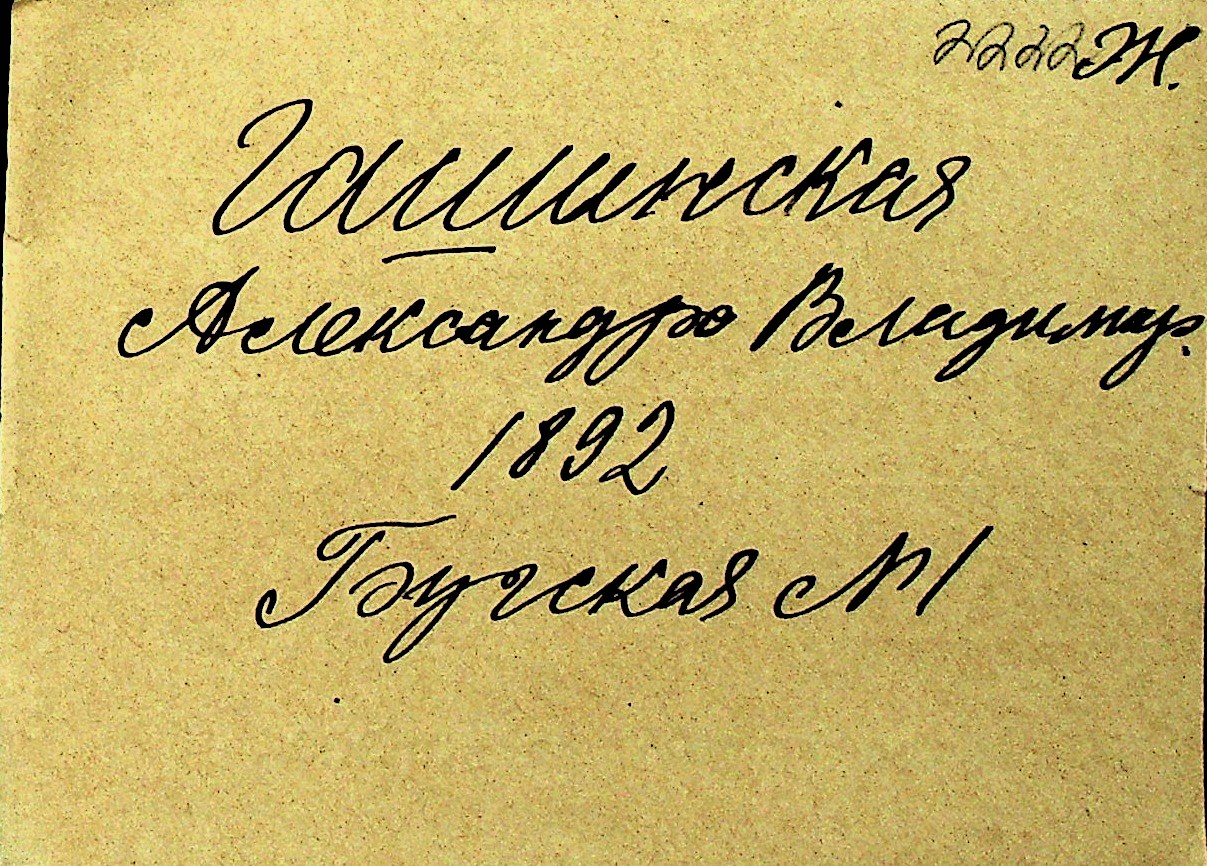 2222 Ж.
Гашинская
Александра Владимир.
1892
Бугская №1